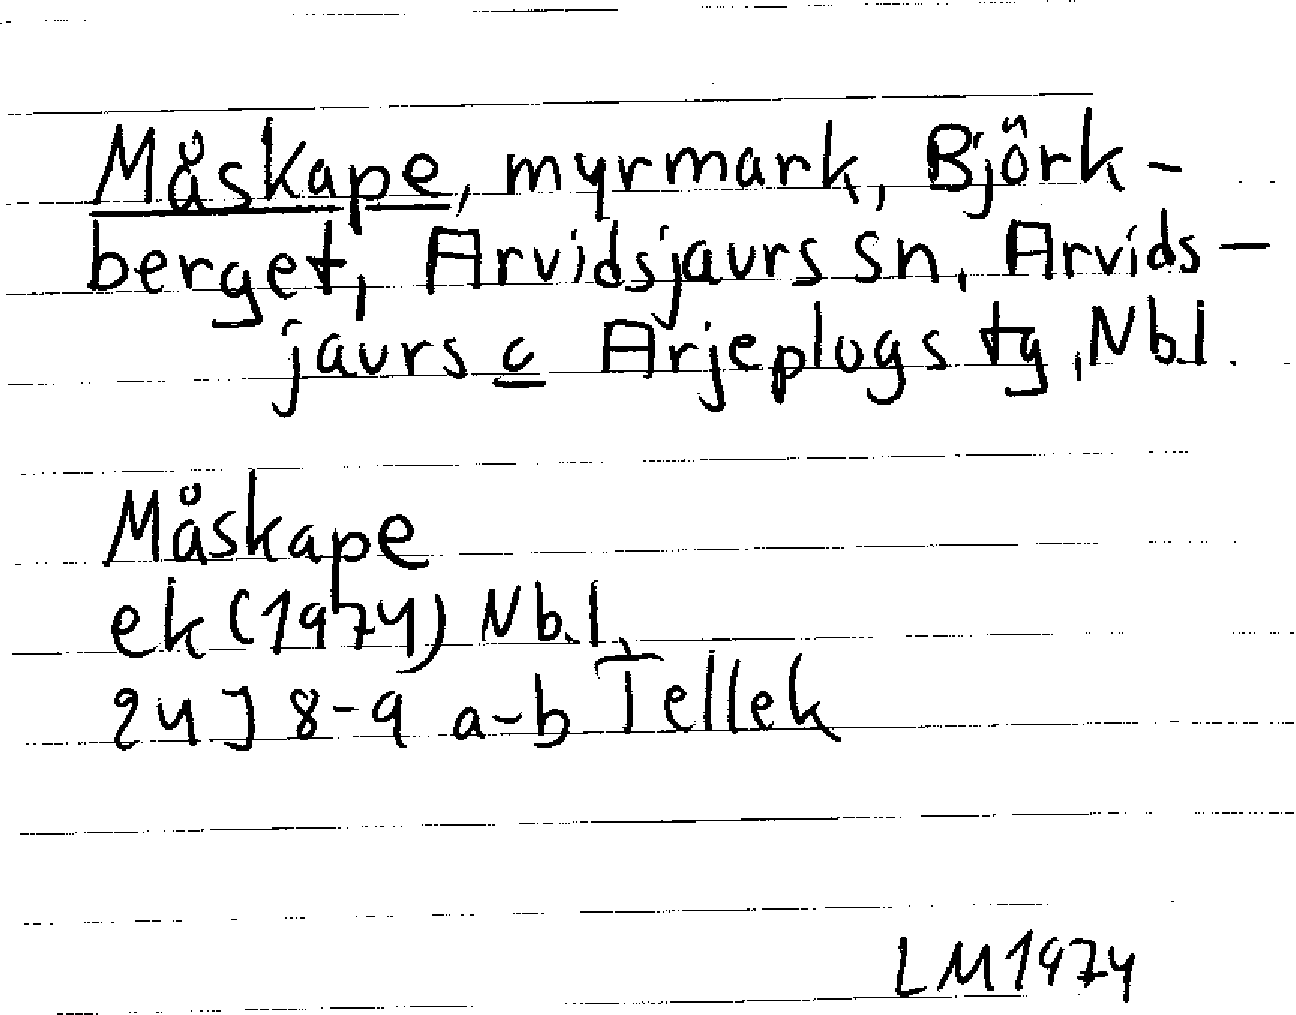 Måskape, myrmark, Björk-
berget, Arvidsjaurs sn, Arvids-
jaurs c Arjeplogs tg, Nb.l.
Måskape
ek (1974) Nb.l.
24J 8-9 a-b Tellek
LM1974